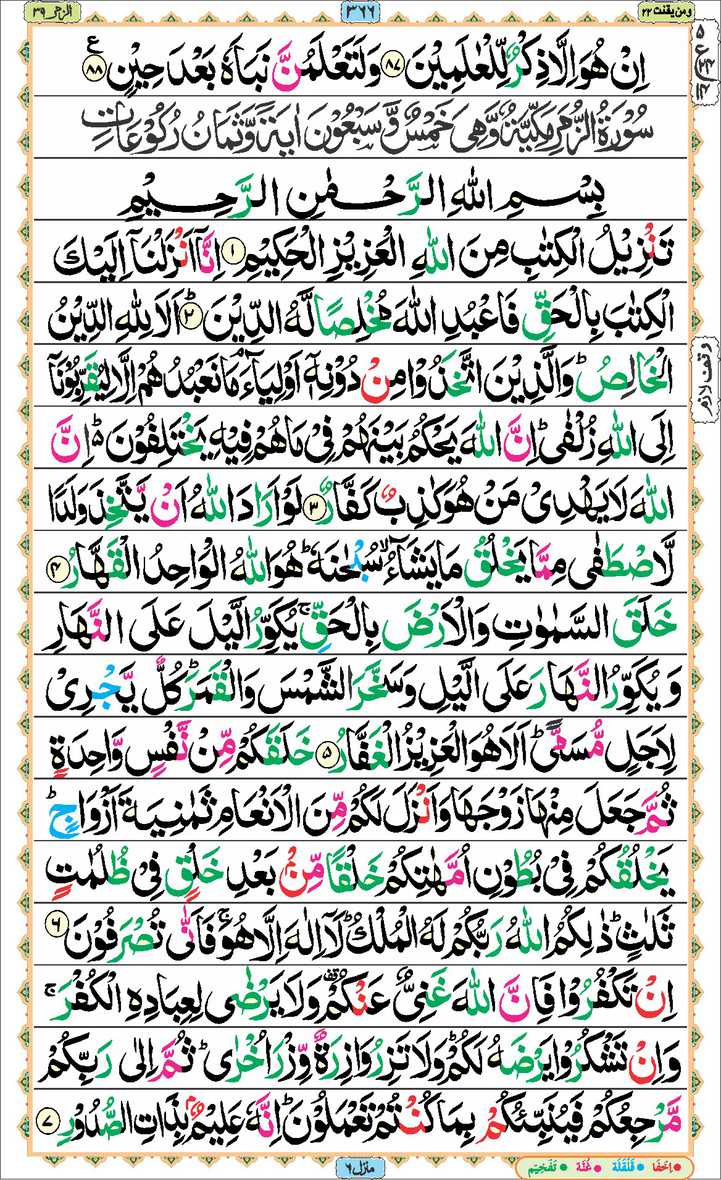 ومن یقنت ۲۲ ۳۶۶ الزمر ۳۹
اِنْ هُوَ اِلَّا ذِكْرٌ لِّلْعٰلَمِيْنَ ﴿۸۷﴾ وَلَتَعْلَمُنَّ نَبَاَهٗ بَعْدَ حِيْنٍ ﴿۸۸﴾ ع
سُوْرَةُ الزُّمَرِ مَكِّيَّةٌ وَّهِىَ خَمْسٌ وَّسَبْعُوْنَ اٰيَةً وَّثَمَانُ رُكُوْعَاتٍ
بِسْمِ اللّٰهِ الرَّحْمٰنِ الرَّحِيْمِ
تَنْزِيْلُ الْكِتٰبِ مِنَ اللّٰهِ الْعَزِيْزِ الْحَكِيْمِ ﴿۱﴾ اِنَّاۤ اَنْزَلْنَاۤ اِلَيْكَ
الْكِتٰبَ بِالْحَقِّ فَاعْبُدِ اللّٰهَ مُخْلِصًا لَّهُ الدِّيْنَ ﴿۲﴾ؕ اَلَا لِلّٰهِ الدِّيْنُ
الْخَالِصُ ؕ وَالَّذِيْنَ اتَّخَذُوْا مِنْ دُوْنِهٖۤ اَوْلِيَآءَ ۘ مَا نَعْبُدُهُمْ اِلَّا لِيُقَرِّبُوْنَاۤ
اِلَى اللّٰهِ زُلْفٰى ؕ اِنَّ اللّٰهَ يَحْكُمُ بَيْنَهُمْ فِىْ مَا هُمْ فِيْهِ يَخْتَلِفُوْنَ ؕ۬ اِنَّ
اللّٰهَ لَا يَهْدِىْ مَنْ هُوَ كٰذِبٌ كَفَّارٌ ﴿۳﴾ لَوْ اَرَادَ اللّٰهُ اَنْ يَّتَّخِذَ وَلَدًا
لَّاصْطَفٰى مِمَّا يَخْلُقُ مَا يَشَآءُ ۙ سُبْحٰنَهٗ ؕ هُوَ اللّٰهُ الْوَاحِدُ الْقَهَّارُ ﴿۴﴾
خَلَقَ السَّمٰوٰتِ وَالْاَرْضَ بِالْحَقِّ ۚ يُكَوِّرُ الَّيْلَ عَلَى النَّهَارِ
وَيُكَوِّرُ النَّهَارَ عَلَى الَّيْلِ وَسَخَّرَ الشَّمْسَ وَالْقَمَرَ ؕ كُلٌّ يَّجْرِىْ
لِاَجَلٍ مُّسَمًّى ؕ اَلَا هُوَ الْعَزِيْزُ الْغَفَّارُ ﴿۵﴾ خَلَقَكُمْ مِّنْ نَّفْسٍ وَّاحِدَةٍ
ثُمَّ جَعَلَ مِنْهَا زَوْجَهَا وَاَنْزَلَ لَكُمْ مِّنَ الْاَنْعَامِ ثَمٰنِيَةَ اَزْوَاجٍ ؕ
يَخْلُقُكُمْ فِىْ بُطُوْنِ اُمَّهٰتِكُمْ خَلْقًا مِّنْۢ بَعْدِ خَلْقٍ فِىْ ظُلُمٰتٍ
ثَلٰثٍ ؕ ذٰلِكُمُ اللّٰهُ رَبُّكُمْ لَهُ الْمُلْكُ ؕ لَاۤ اِلٰهَ اِلَّا هُوَ ۚ فَاَنّٰى تُصْرَفُوْنَ ﴿۶﴾
اِنْ تَكْفُرُوْا فَاِنَّ اللّٰهَ غَنِىٌّ عَنْكُمْ ۟ وَلَا يَرْضٰى لِعِبَادِهِ الْكُفْرَ ۚ
وَاِنْ تَشْكُرُوْا يَرْضَهُ لَكُمْ ؕ وَلَا تَزِرُ وَازِرَةٌ وِّزْرَ اُخْرٰى ؕ ثُمَّ اِلٰى رَبِّكُمْ
مَّرْجِعُكُمْ فَيُنَبِّئُكُمْ بِمَا كُنْتُمْ تَعْمَلُوْنَ ؕ اِنَّهٗ عَلِيْمٌۢ بِذَاتِ الصُّدُوْرِ ﴿۷﴾
وقف لازم
منزل ۶
اِخفَا قَلْقَلَه غُنَّه تَفْخِيْم